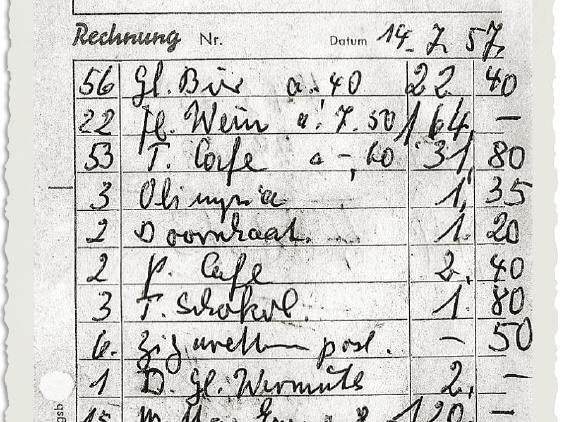 Rechnung Nr. Datum 14. 7. 57.
56 Gl. Bier a. -.40 22 40
22 fl. Wein a. 7.50 164, —
53 T. Cafe a -,60 31, 80
3 Olimpia 1, 35
2 Doornkaat. 1. 20
2 p. Cafe 2, 40
3 T. Schokol. 1. 80
6. Zigaretten — 50
1 D. Gl. Wermuth 2, —
15 120. —